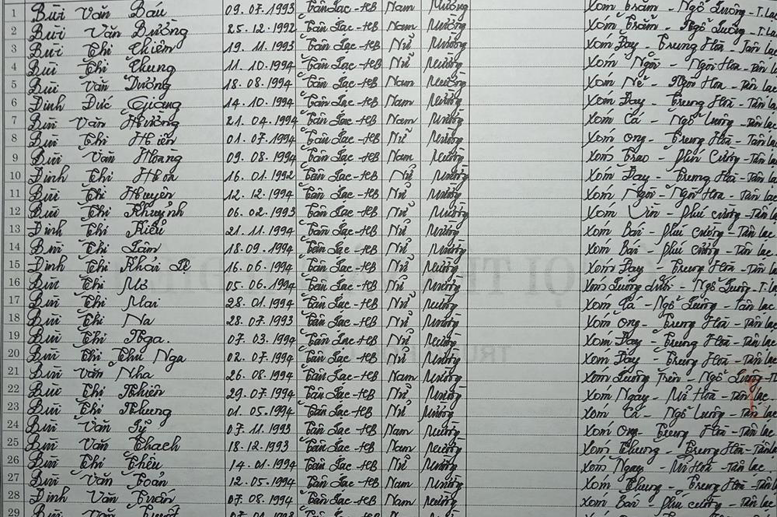 1 Bùi Văn Báu 09.07.1993 Tân Lạc-HB Nam Mường Xóm Trăm - Ngổ Luông - T.Lạc
2 Bùi Văn Dưỡng 25.12.1992 Tân Lạc-HB Nam Mường Xóm Trăm - Ngổ Luông - T.Lạc
3 Bùi Thị Chiên 19.11.1993 Tân Lạc-HB Nữ Mường Xóm Đay - Trung Hoà - Tân Lạc
4 Bùi Thị Chung 11.10.1994 Tân Lạc-HB Nữ Mường Xóm Ngòi - Ngòi Hoa - Tân Lạc
5 Bùi Văn Dương 18.08.1994 Tân Lạc-HB Nam Mường Xóm Nẻ - Ngòi Hoa - Tân Lạc
6 Đinh Đức Giang 14.10.1994 Tân Lạc-HB Nam Mường Xóm Đay - Trung Hoà - Tân Lạc
7 Bùi Văn 21.04.1994 Tân Lạc-HB Nam Mường Xóm Cá - Ngổ Luông - Tân Lạc
8 Bùi Thị Hiên 01.07.1994 Tân Lạc-HB Nữ Mường Xóm Ong - Trung Hoà - Tân Lạc
9 Bùi Văn Hoàng 09.08.1994 Tân Lạc-HB Nam Mường Xóm Trao - Phú Cường - Tân Lạc
10 Đinh Thị 16.01.1992 Tân Lạc-HB Nữ Mường Xóm Đay - Trung Hoà - Tân Lạc
11 Bùi Thị Huyên 12.12.1994 Tân Lạc-HB Nữ Mường Xóm Ngòi - Ngòi Hoa - Tân Lạc
12 Bùi Thị Khuỳnh 06.02.1993 Tân Lạc-HB Nữ Mường Xóm - Phú Cường - Tân Lạc
13 Đinh Thị Kiều 21.11.1994 Tân Lạc-HB Nữ Mường Xóm Bái - Phú Cường - Tân Lạc
14 Bùi Thị 18.09.1994 Tân Lạc-HB Nữ Mường Xóm Bái - Phú Cường - Tân Lạc
15 Đinh Thị 16.06.1994 Tân Lạc-HB Nữ Mường Xóm Đay - Trung Hoà - Tân Lạc
16 Bùi Thị 05.06.1994 Tân Lạc-HB Nữ Mường Xóm Luông Dưới - Ngổ Luông - T.Lạc
17 Bùi Thị Mai 28.01.1994 Tân Lạc-HB Nữ Mường Xóm Cá - Ngổ Luông - Tân Lạc
18 Bùi Thị Na 28.07.1993 Tân Lạc-HB Nữ Mường Xóm Ong - Trung Hoà - Tân Lạc
19 Bùi Thị Nga 07.03.1994 Tân Lạc-HB Nữ Mường Xóm Đay - Trung Hoà - Tân Lạc
20 Bùi Thị Thu Nga 02.07.1994 Tân Lạc-HB Nữ Mường Xóm Đay - Trung Hoà - Tân Lạc
21 Bùi Văn Nha 26.08.1994 Tân Lạc-HB Nam Mường Xóm Luông Trên - Ngổ Luông - T
22 Bùi Thị Nhiên 29.07.1994 Tân Lạc-HB Nữ Mường Xóm Ngay - Mĩ Hoà - Tân Lạc
23 Bùi Thị Nhung 01.05.1994 Tân Lạc-HB Nữ Mường Xóm Cá - Ngổ Luông - Tân Lạc
24 Bùi Văn 07.11.1993 Tân Lạc-HB Nam Mường Xóm Ong - Trung Hoà - Tân Lạc
25 Bùi Văn Thạch 18.12.1993 Tân Lạc-HB Nam Mường Xóm Thung - Trung Hoà - Tân Lạc
26 Bùi Thị Thêu 14.01.1994 Tân Lạc-HB Nữ Mường Xóm Ngay - Mĩ Hoà - Tân Lạc
27 Bùi Văn Toản 12.05.1994 Tân Lạc-HB Nam Mường Xóm Thung - Trung Hoà - Tân Lạc
28 Đinh Văn Tuấn 07.08.1994 Tân Lạc-HB Nam Mường Xóm Bái - Phú Cường - Tân Lạc
29 Bùi Văn